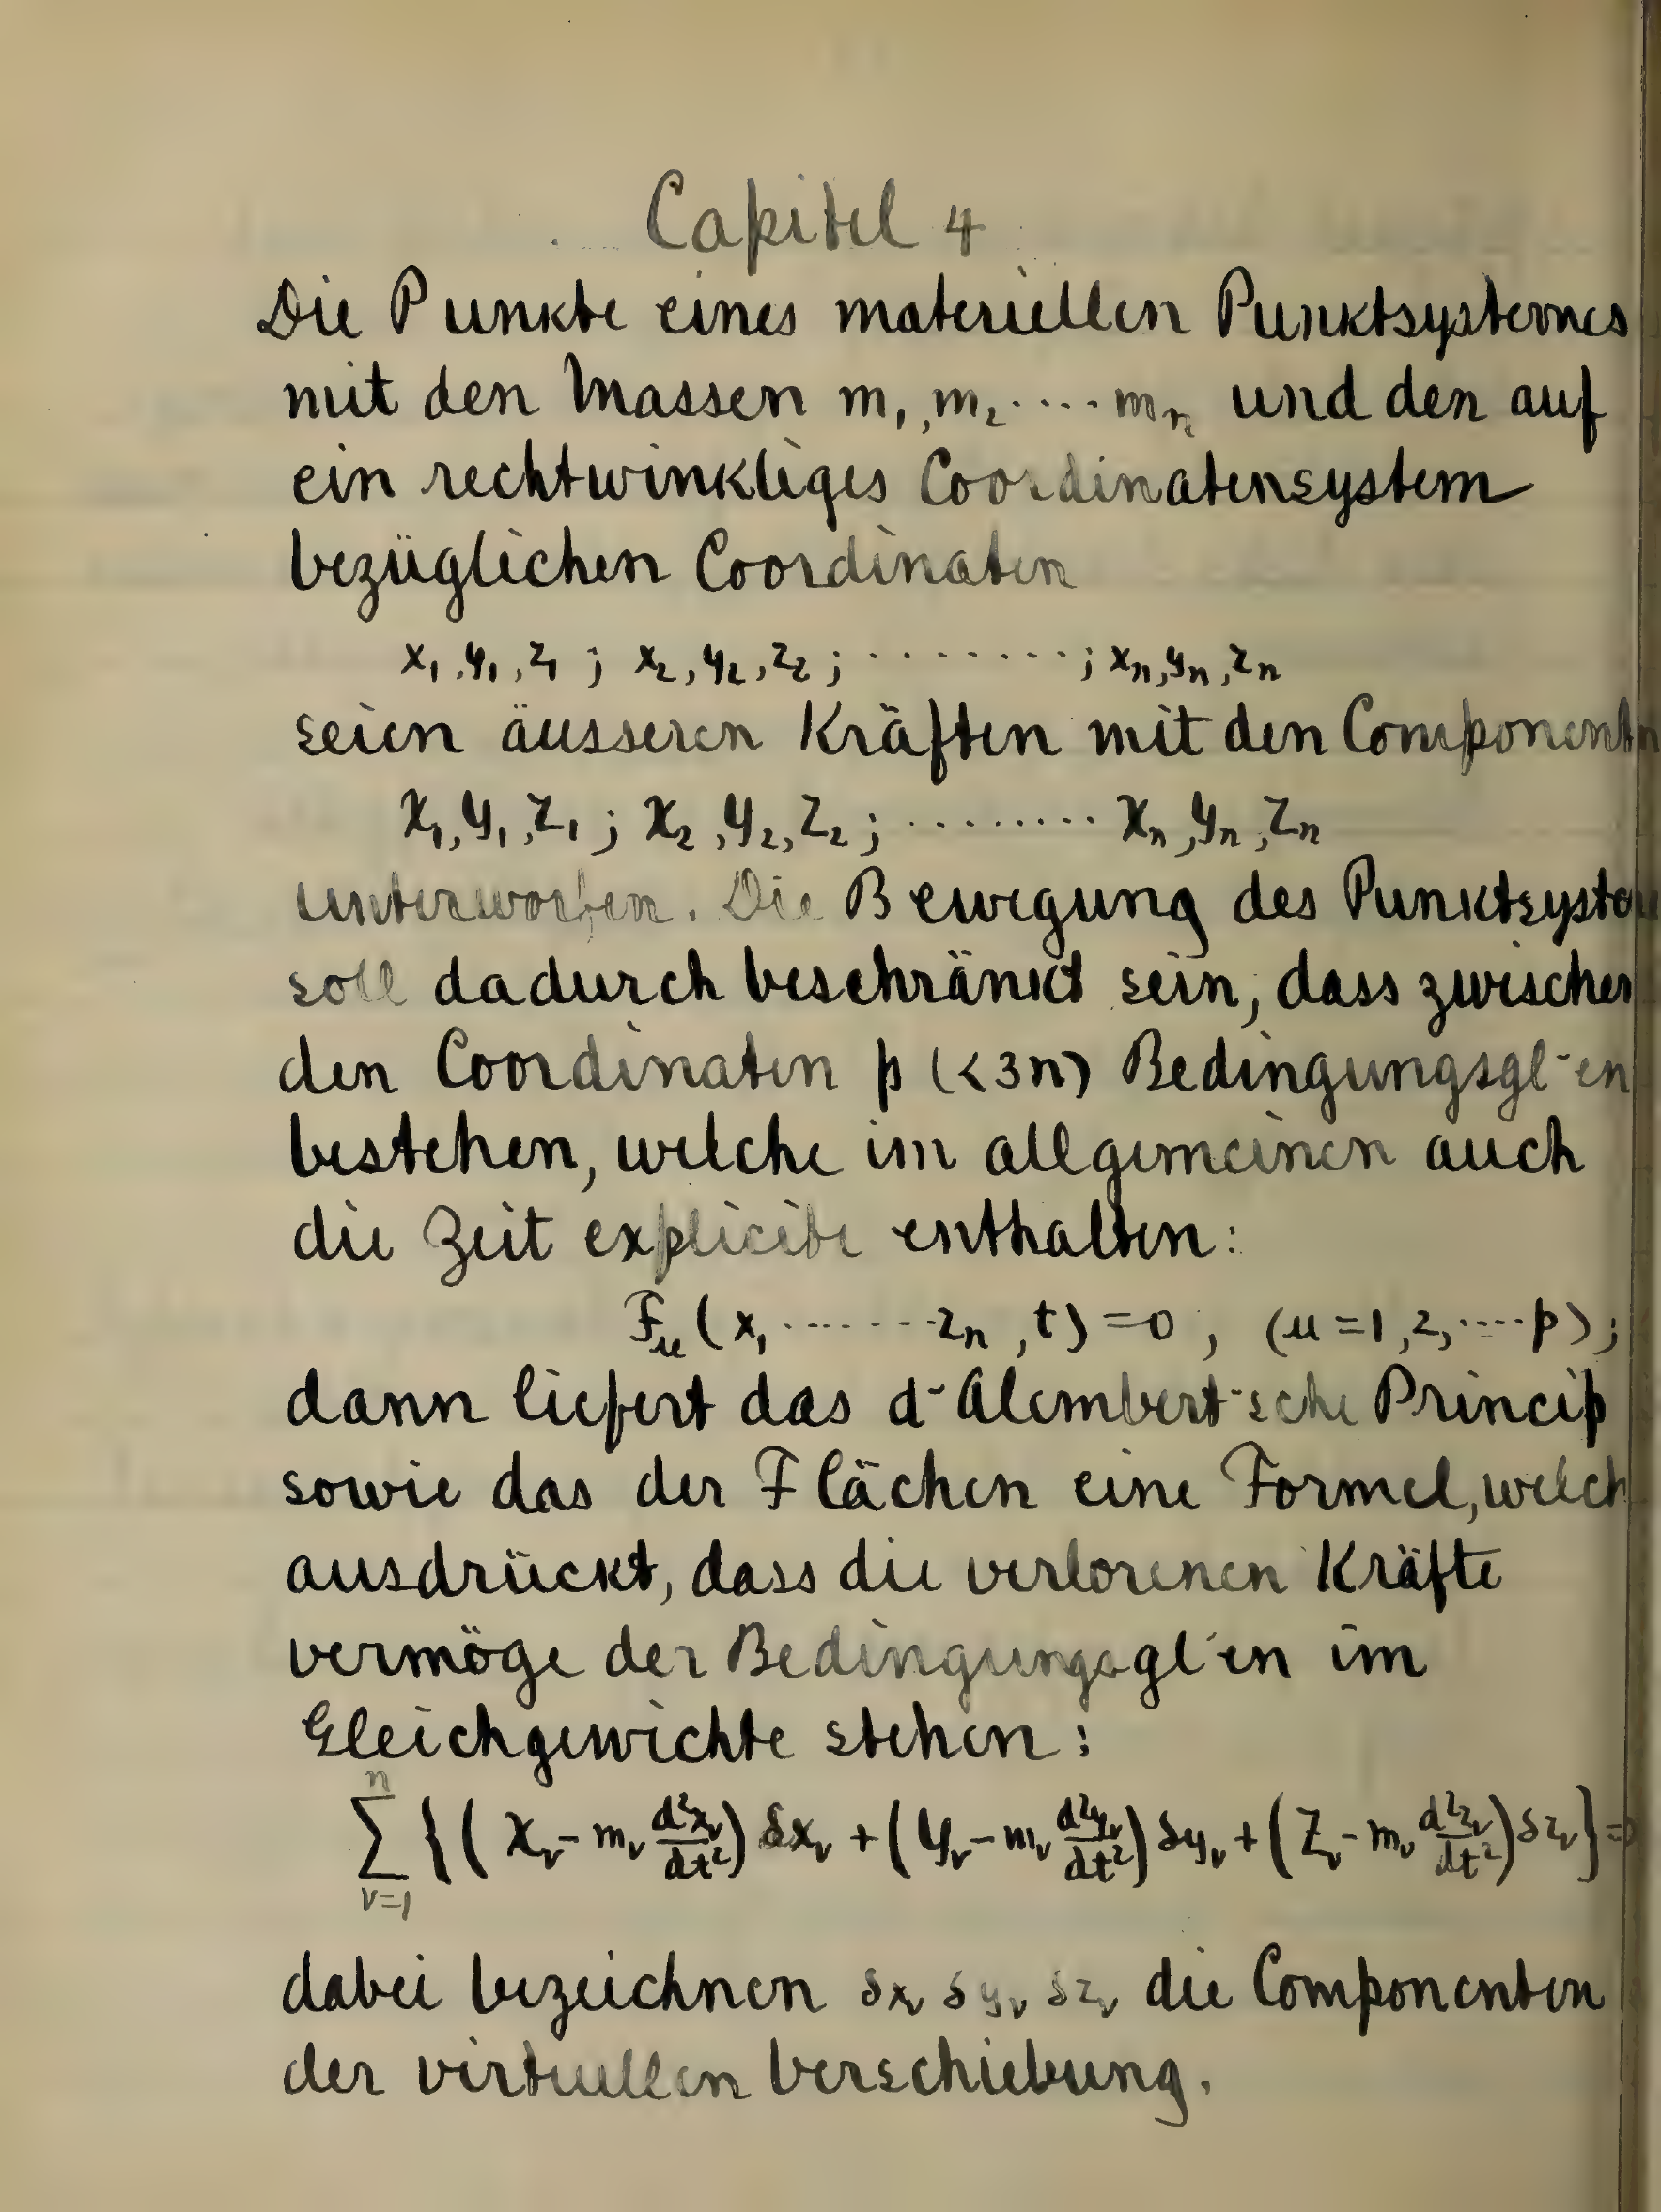 Capitel 4
Die Punkte eines materiellen Punktsystemes
mit den Massen m₁, m₂ ···· mₙ und den auf
ein rechtwinkliges Coordinatensystem
bezüglichen Coordinaten
x₁, y₁, z₁ ; x₂, y₂, z₂ ; ········· ; xₙ, yₙ, zₙ
seien äusseren Kräften mit den Componenten
X₁, Y₁, Z₁ ; X₂, Y₂, Z₂ ; ········· Xₙ, Yₙ, Zₙ
unterworfen. Die Bewegung des
soll dadurch beschränkt sein, dass zwischen
den Coordinaten p (<3n) Bedingungsgl-en
bestehen, welche im allgemeinen auch
die Zeit explicite enthalten:
F_μ (x₁ ········ zₙ, t) = 0, (μ = 1, 2, ···· p);
dann liefert das d-Alembert-sche Princip
sowie das der Flächen eine Formel, welch
ausdrückt, dass die verlorenen Kräfte
vermöge der Bedingungsgl-en im
Gleichgewichte stehen:
∑_{ν=1}^{n} {(X_ν - m_ν d²x_ν/dt²) δx_ν + (Y_ν - m_ν d²y_ν/dt²) δy_ν + (Z_ν - m_ν d²z_ν/dt²) δz_ν} = 0
dabei bezeichnen δx_ν δy_ν δz_ν die Componenten
der virtuellen Verschiebung.